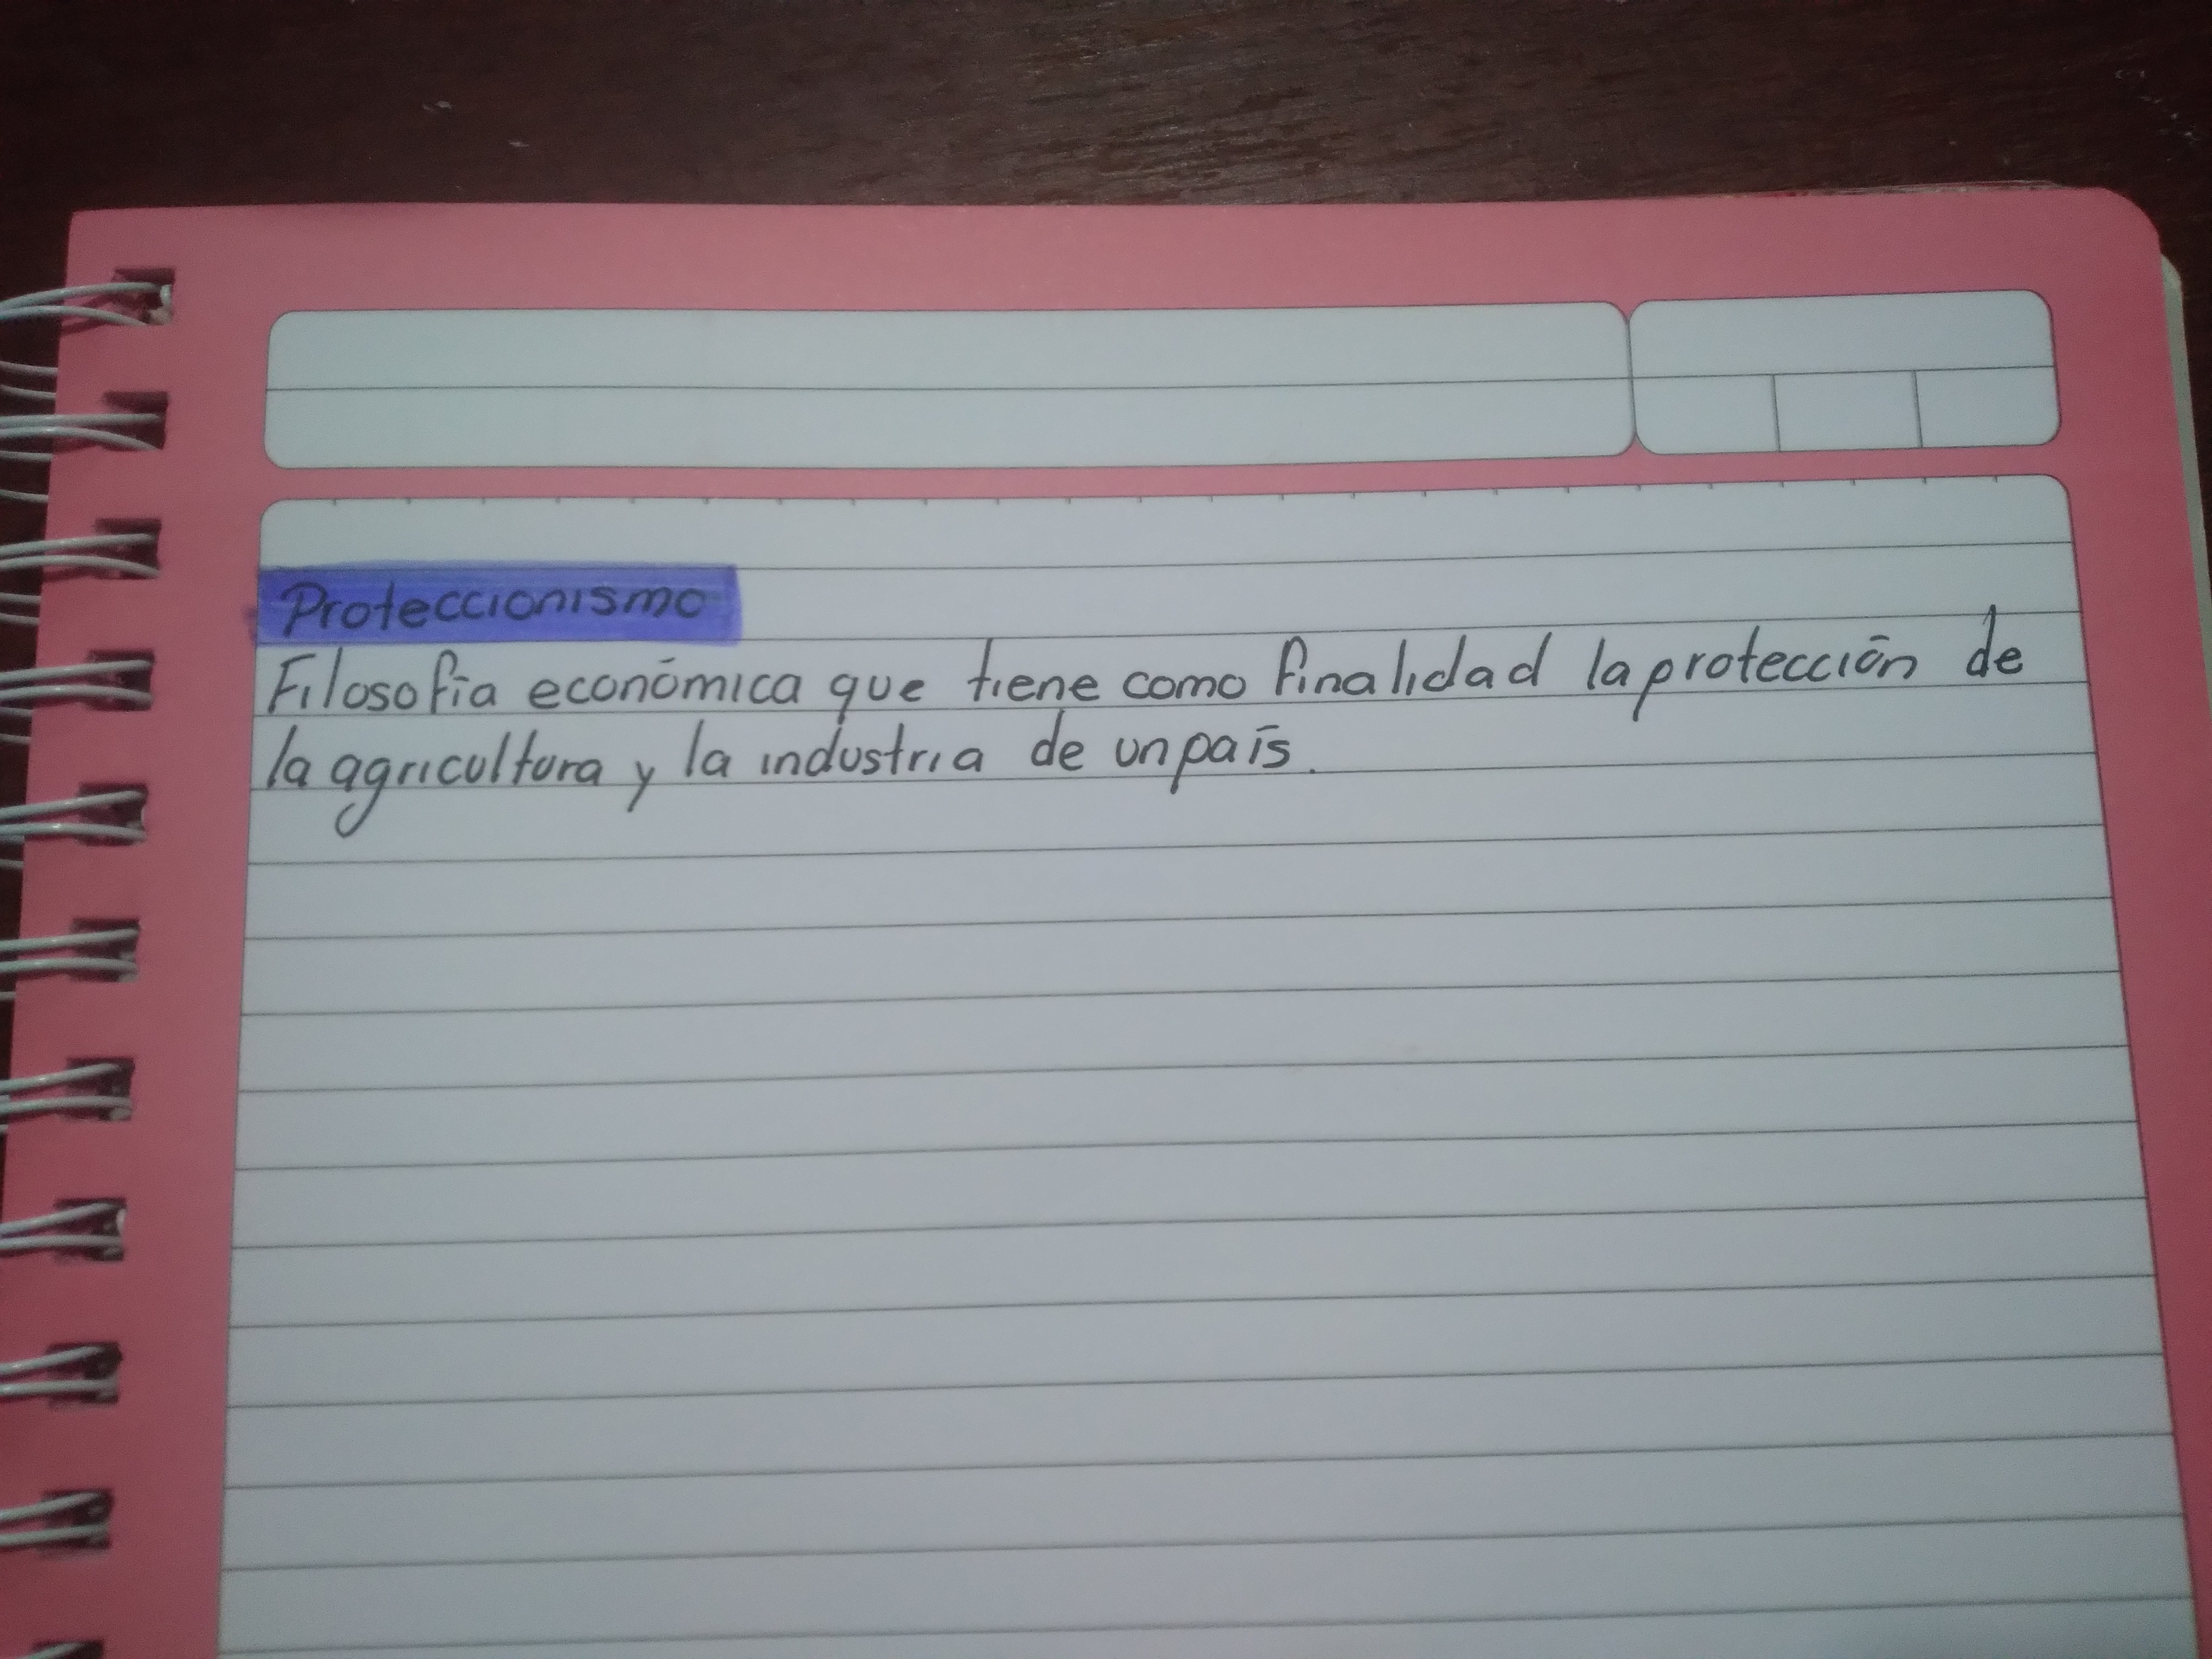 Proteccionismo
Filosofía económica que tiene como finalidad la protección de
la agricultura y la industria de un país.